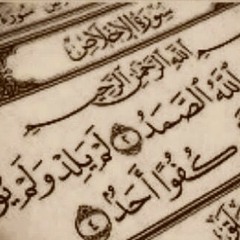 سورة الإخلاص
الله الرحمن الرحيم
الله الصمد ٢ لم يلد ولم يو
كفوا أحد ٤